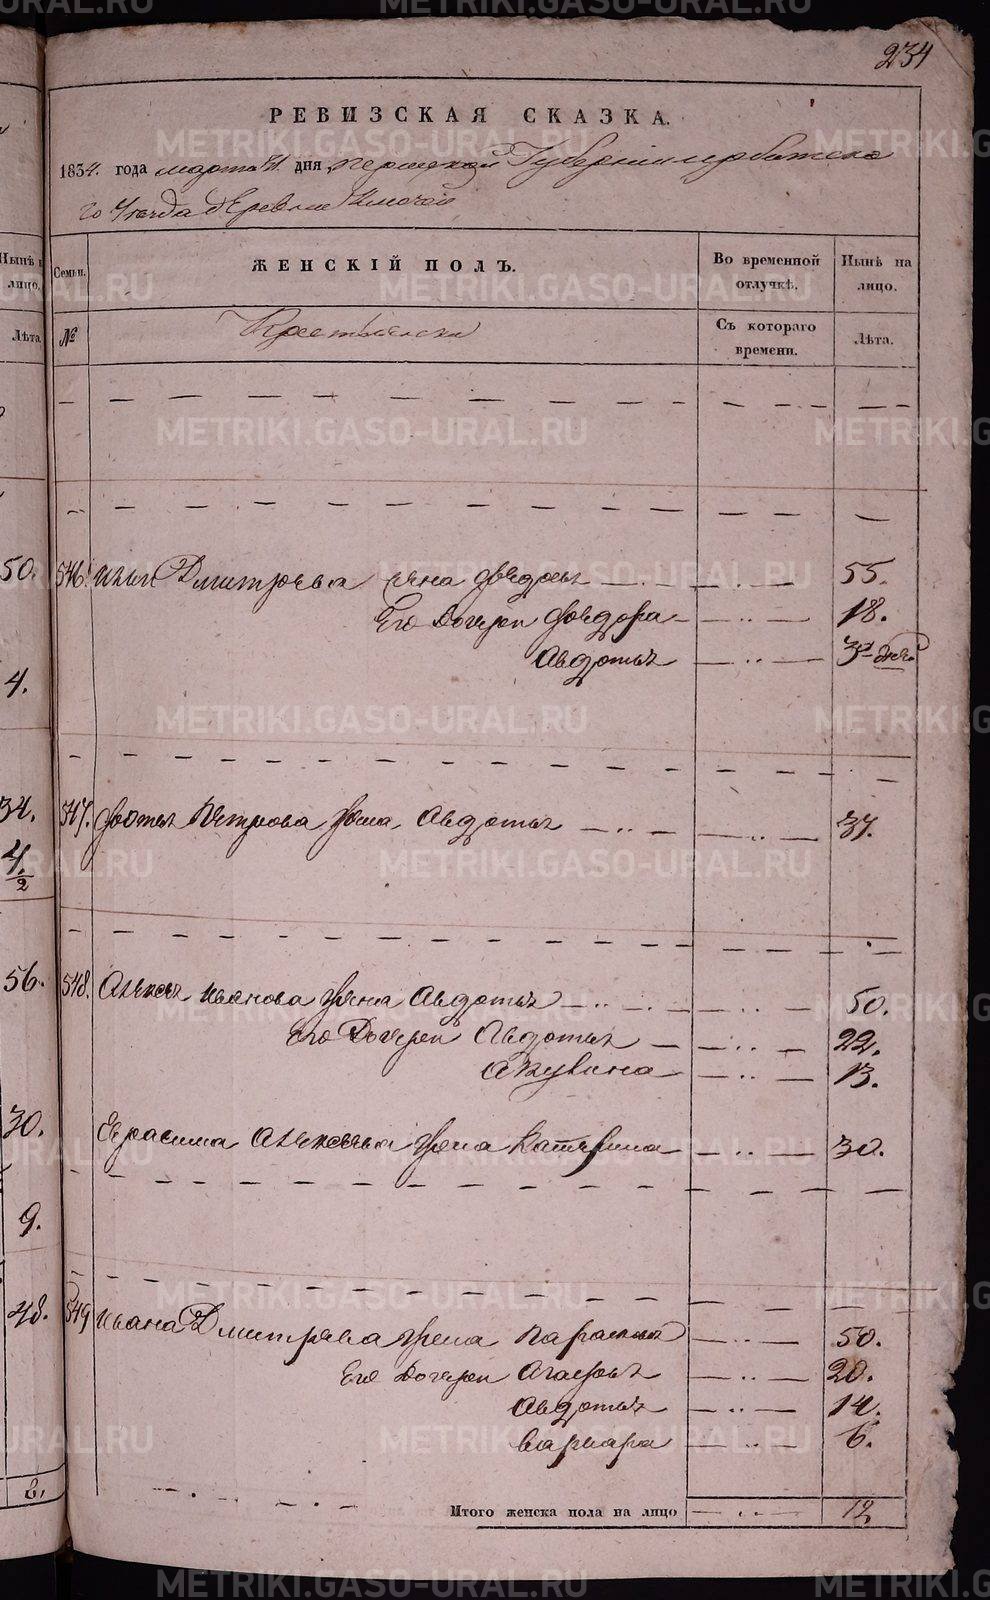 234
РЕВИЗСКАЯ СКАЗКА.
1834. года марта дня, Пермской Губернии ирбитска
го уезда деревни
Нынѣ н
лицо.
Лѣта.
Семьи. ЖЕНСКІЙ ПОЛЪ. Во временной отлучкѣ. Нынѣ на лицо.
№ Крестьянска Съ котораго времени. Лѣта.
50. 546. Дмитрѣва жена Федосья 55.
Его Дочери Федора 18.
Авдотья
4.
34. 547. Фотея Петрова жена Авдотья 37.
4.
2
56. 548. Алексея Иванова жена Авдотья 50.
Его Дочери Авдотья 22.
Акулина 13.
30. Герасима Алексѣева жена Катерина 30.
9.
48. 549 Ивана Дмитрѣва жена Парасковья 50.
Его Дочери Агафья 20.
Авдотья 14.
Варвара 6.
8. Итого женска пола на лицо 12
METRIKI.GASO-URAL.RU